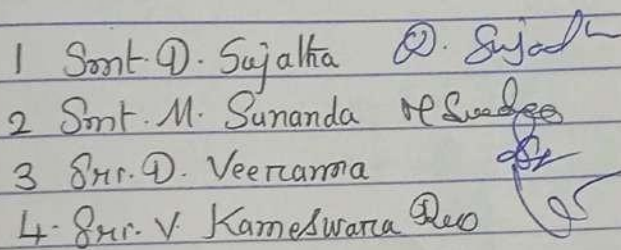 1 Smt. D. Sujatha D. Sujath
2 Smt. M. Sunanda
3 Sri. D. Veeranna
4. Sri. V. Kameswara Rao